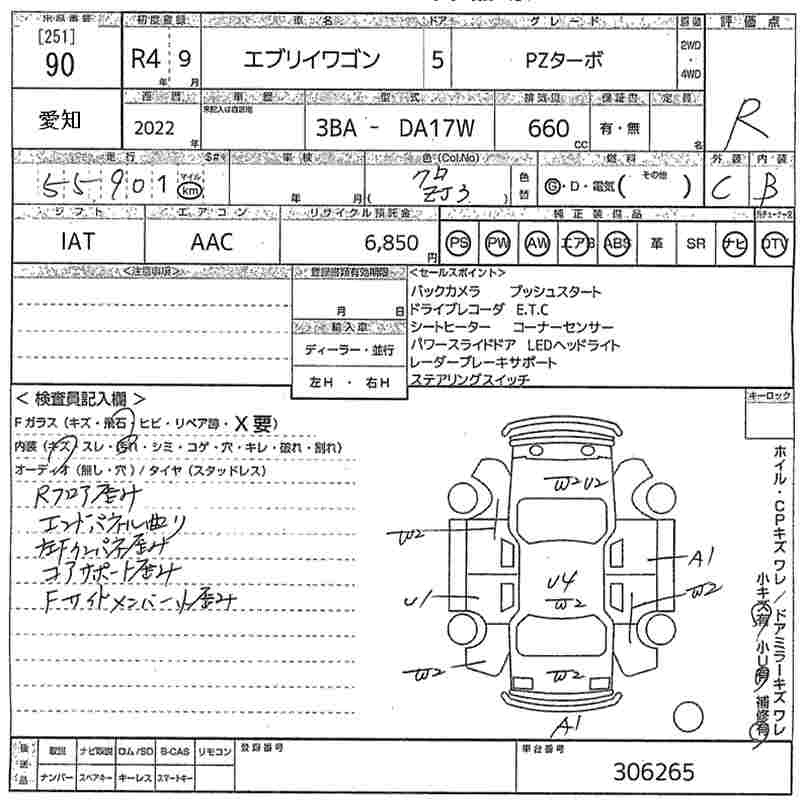 出品番号 初度登録 車名 ドア グレード 駆動 評価点
[251]
90 R4年 9月 エブリイワゴン 5 PZターボ 2WD・4WD R
愛知
歴 車歴 型式 排気量 保証書 定員
2022年 未記入は自家用 3BA - DA17W 660CC 有・無 名
走行 車検 色(Col.No) 色替 燃料 外装 内装
55901 マイル km 年 月 ( ZJ3 ) Ⓖ・D・電気( その他 ) C B
シフト エアコン リサイクル預託金 純正装備品
IAT AAC 6,850円 PS PW AW エアB ABS 革 SR ナビ DTV
<注意事項> 登録書類有効期限 <セールスポイント>
月 日
バックカメラ プッシュスタート
ドライブレコーダ E.T.C
シートヒーター コーナーセンサー
パワースライドドア LEDヘッドライト
レーダーブレーキサポート
ステアリングスイッチ
輸入車
ディーラー・並行
左H・右H
< 検査員記入欄 > キーロック
Fガラス (キズ・飛石) ヒビ・リペア跡・X要)
内装 (キズ・スレ・汚れ・シミ・コゲ・穴・キレ・破れ・割れ)
オーディオ (無し・穴) / タイヤ (スタッドレス)
Rフロア歪み
エンドパネル曲り
左Fインパネ歪み
コアサポート歪み
FサイドメンバーL歪み
W2 U2
W2
A1
U4
W2
U1
W2
W2
W2
A1
ホイル・CPキズ ワレ / ドアミラーキズ ワレ
小キズ有 / 小U有 / 補修有
後送品 取説 ナビ取説 ロム/SD B-CAS リモコン 登録番号 車台番号
ナンバー スペアキー キーレス スマートキー 306265